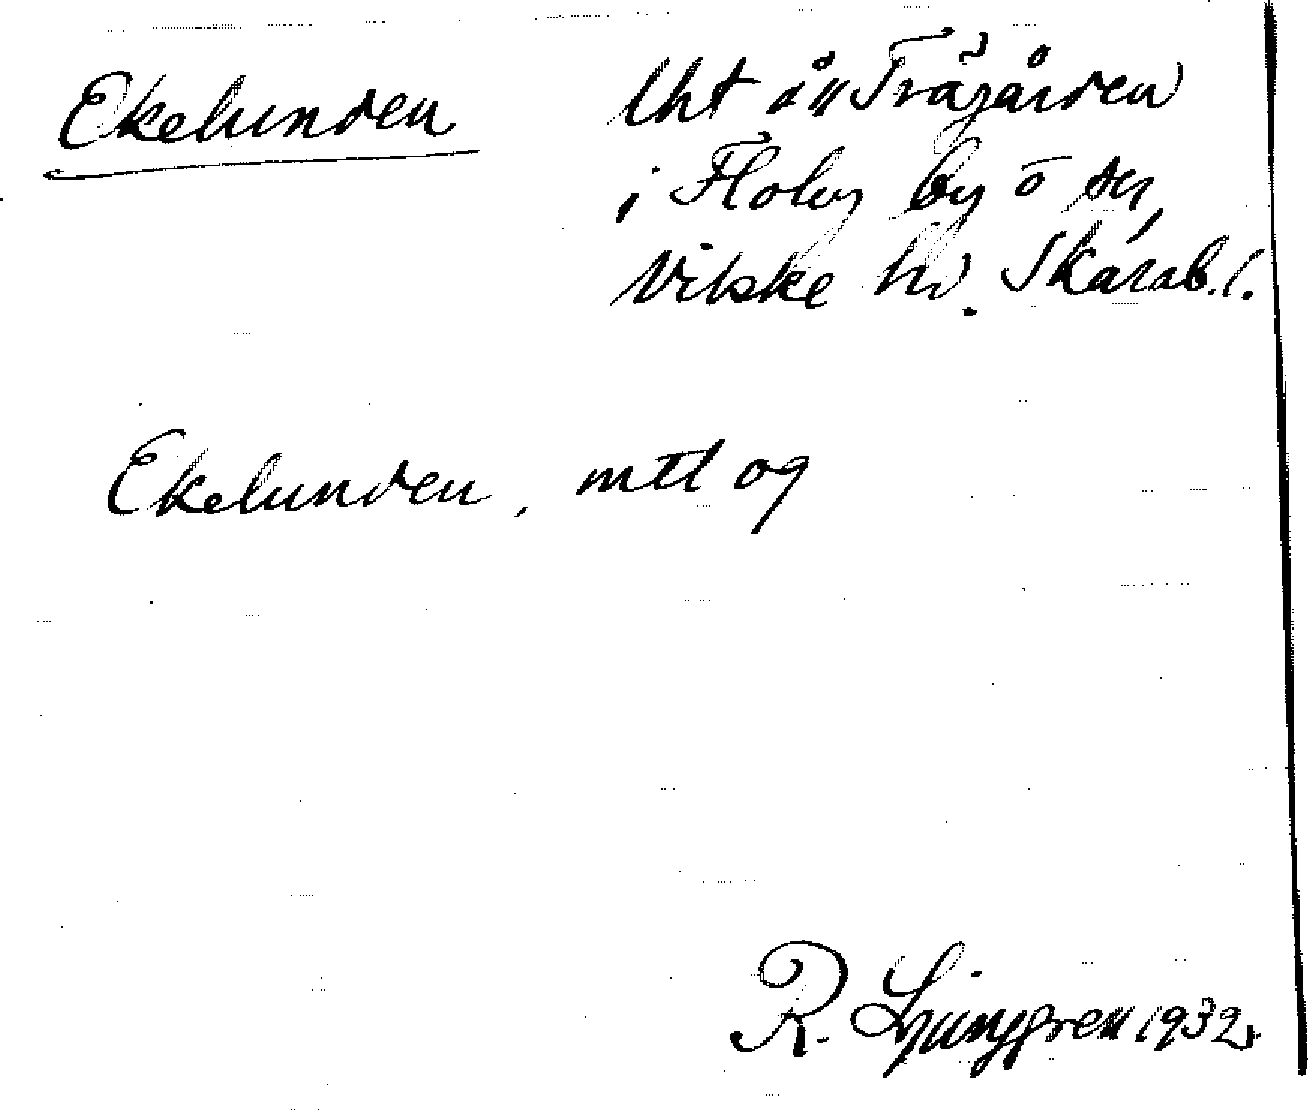 Ekelunden
Lht å Trägården
i Floby by o sn,
Vilske hd. Skarab.l.
Ekelunden, mtl og
R. Ljunggren 1932.